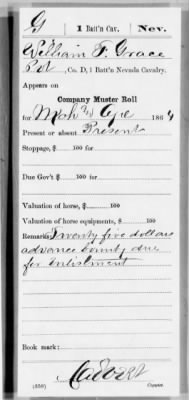 G 1 Batt'n Cav. Nev.
William F. Grace
Pvt, Co. D, 1 Batt'n Nevada Cavalry.
Appears on
Company Muster Roll
for Mch & Apl, 1864
Present or absent Present
Stoppage, $ 100 for
Due Gov't $ 100 for
Valuation of horse, $ 100
Valuation of horse equipments, $ 100
Remarks: Twenty five dollars
advance bounty due
for enlistment
Book mark:
(358) Copyist.